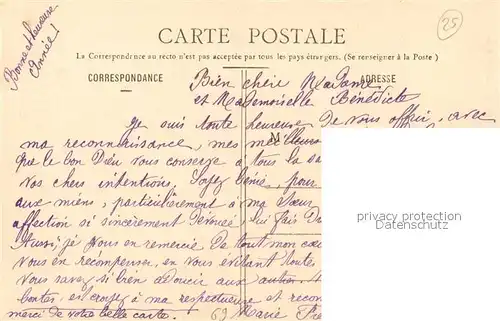 Bonne et heureuse
Année!
25
CARTE POSTALE
La Correspondance au recto n'est pas acceptée par tous les pays étrangers. (Se renseigner à la Poste)
CORRESPONDANCE
ADRESSE
Bien chère Madame
et Mademoiselle Bénédicte
Je suis toute heureuse de vous offrir, avec
M
ma reconnaissance, mes meilleurs
que le bon Dieu vous conserve à tous la sa
Vos chers intentions. Soyez bénie, pour
aux miens, particulièrement à ma Sœur
affection si sincèrement dévouée, lui fais
Aussi, je vous en remercie de tout mon cœur
vous en récompenser, en vous évitant toute
Vous savez si bien adoucir aux autres.
bontés, et croyez à ma respectueuse et recon
merci de votre belle carte. 69 Marie
privacy protection
AnsichtskartenHandel.de